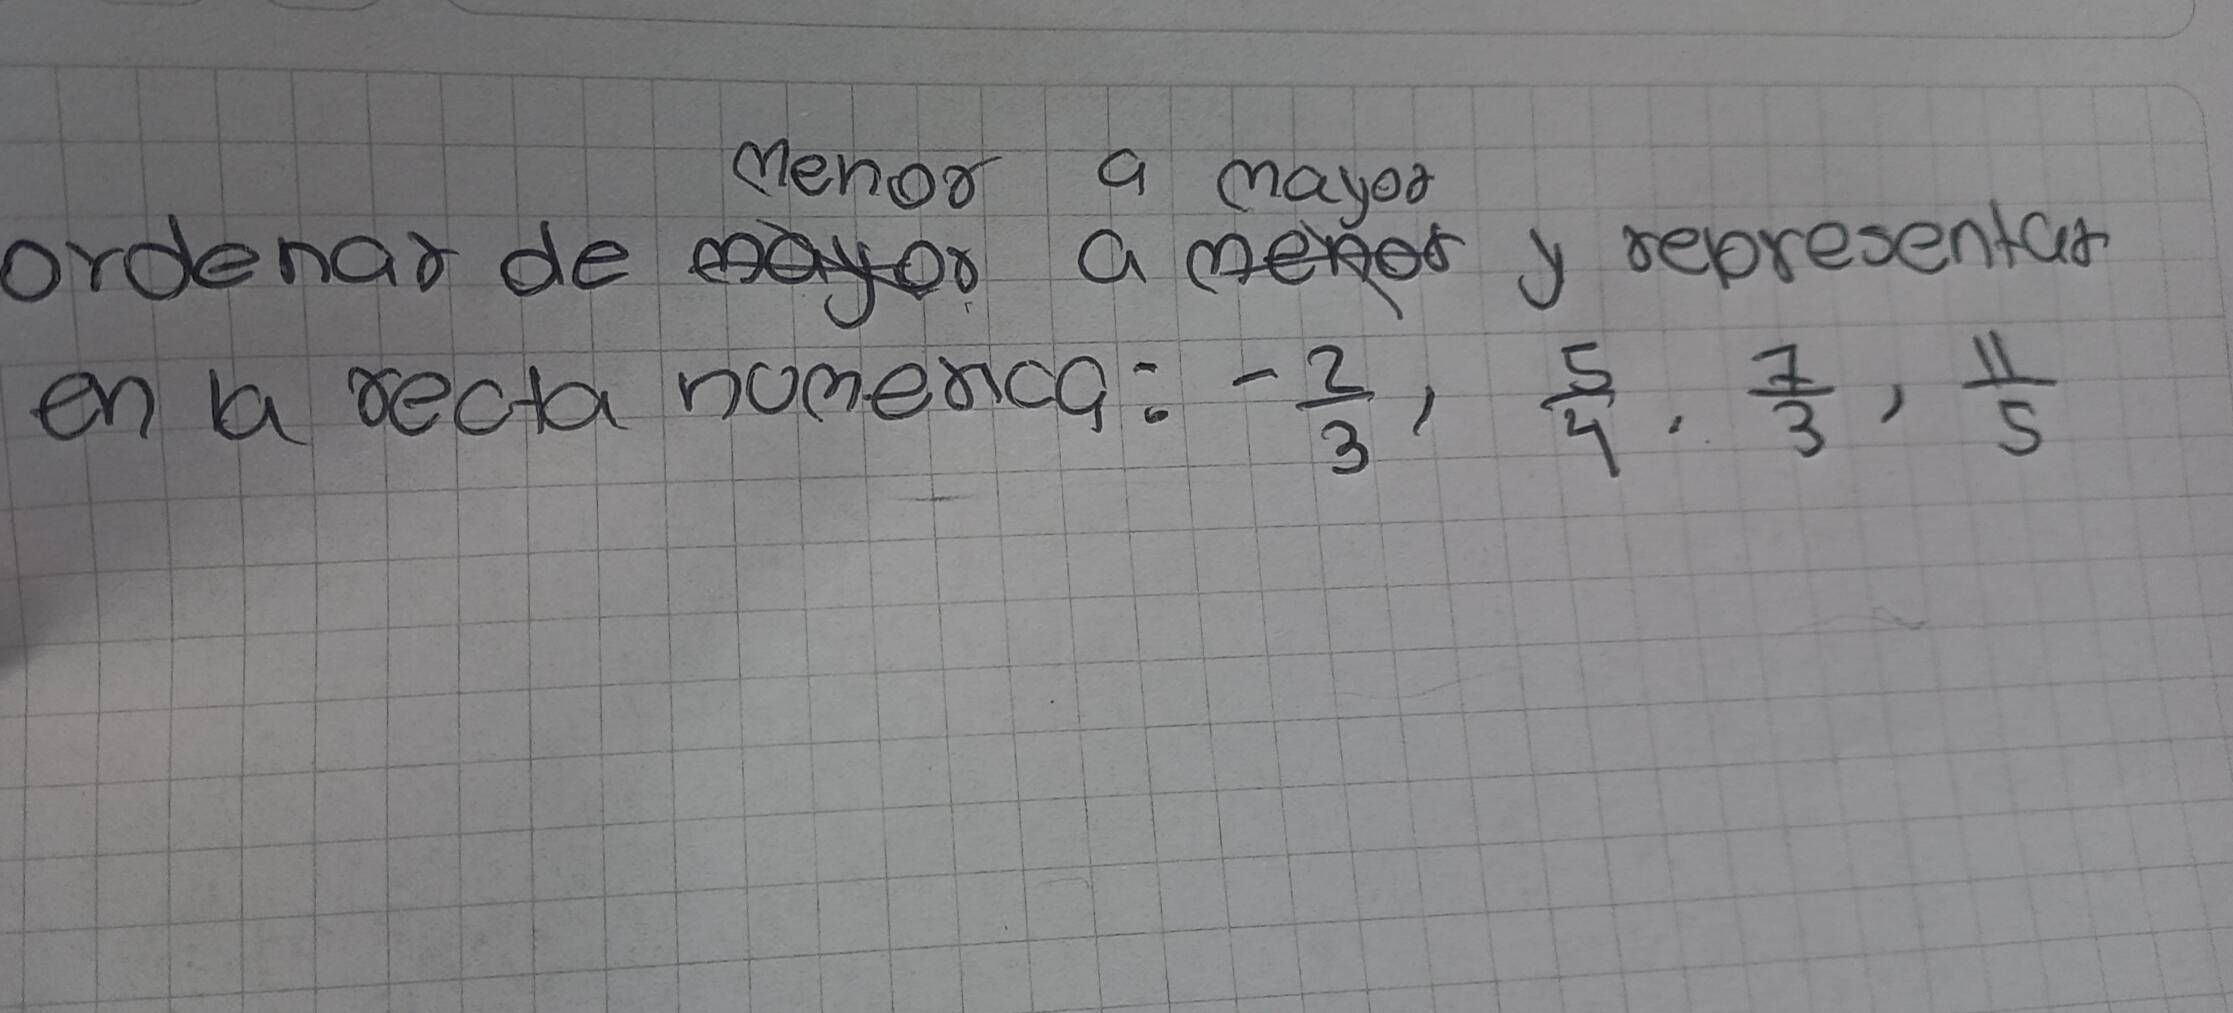 menor a mayor
ordenar de mayor a menor y representar
en la recta numerica: -2/3, 5/4. 7/3, 11/5